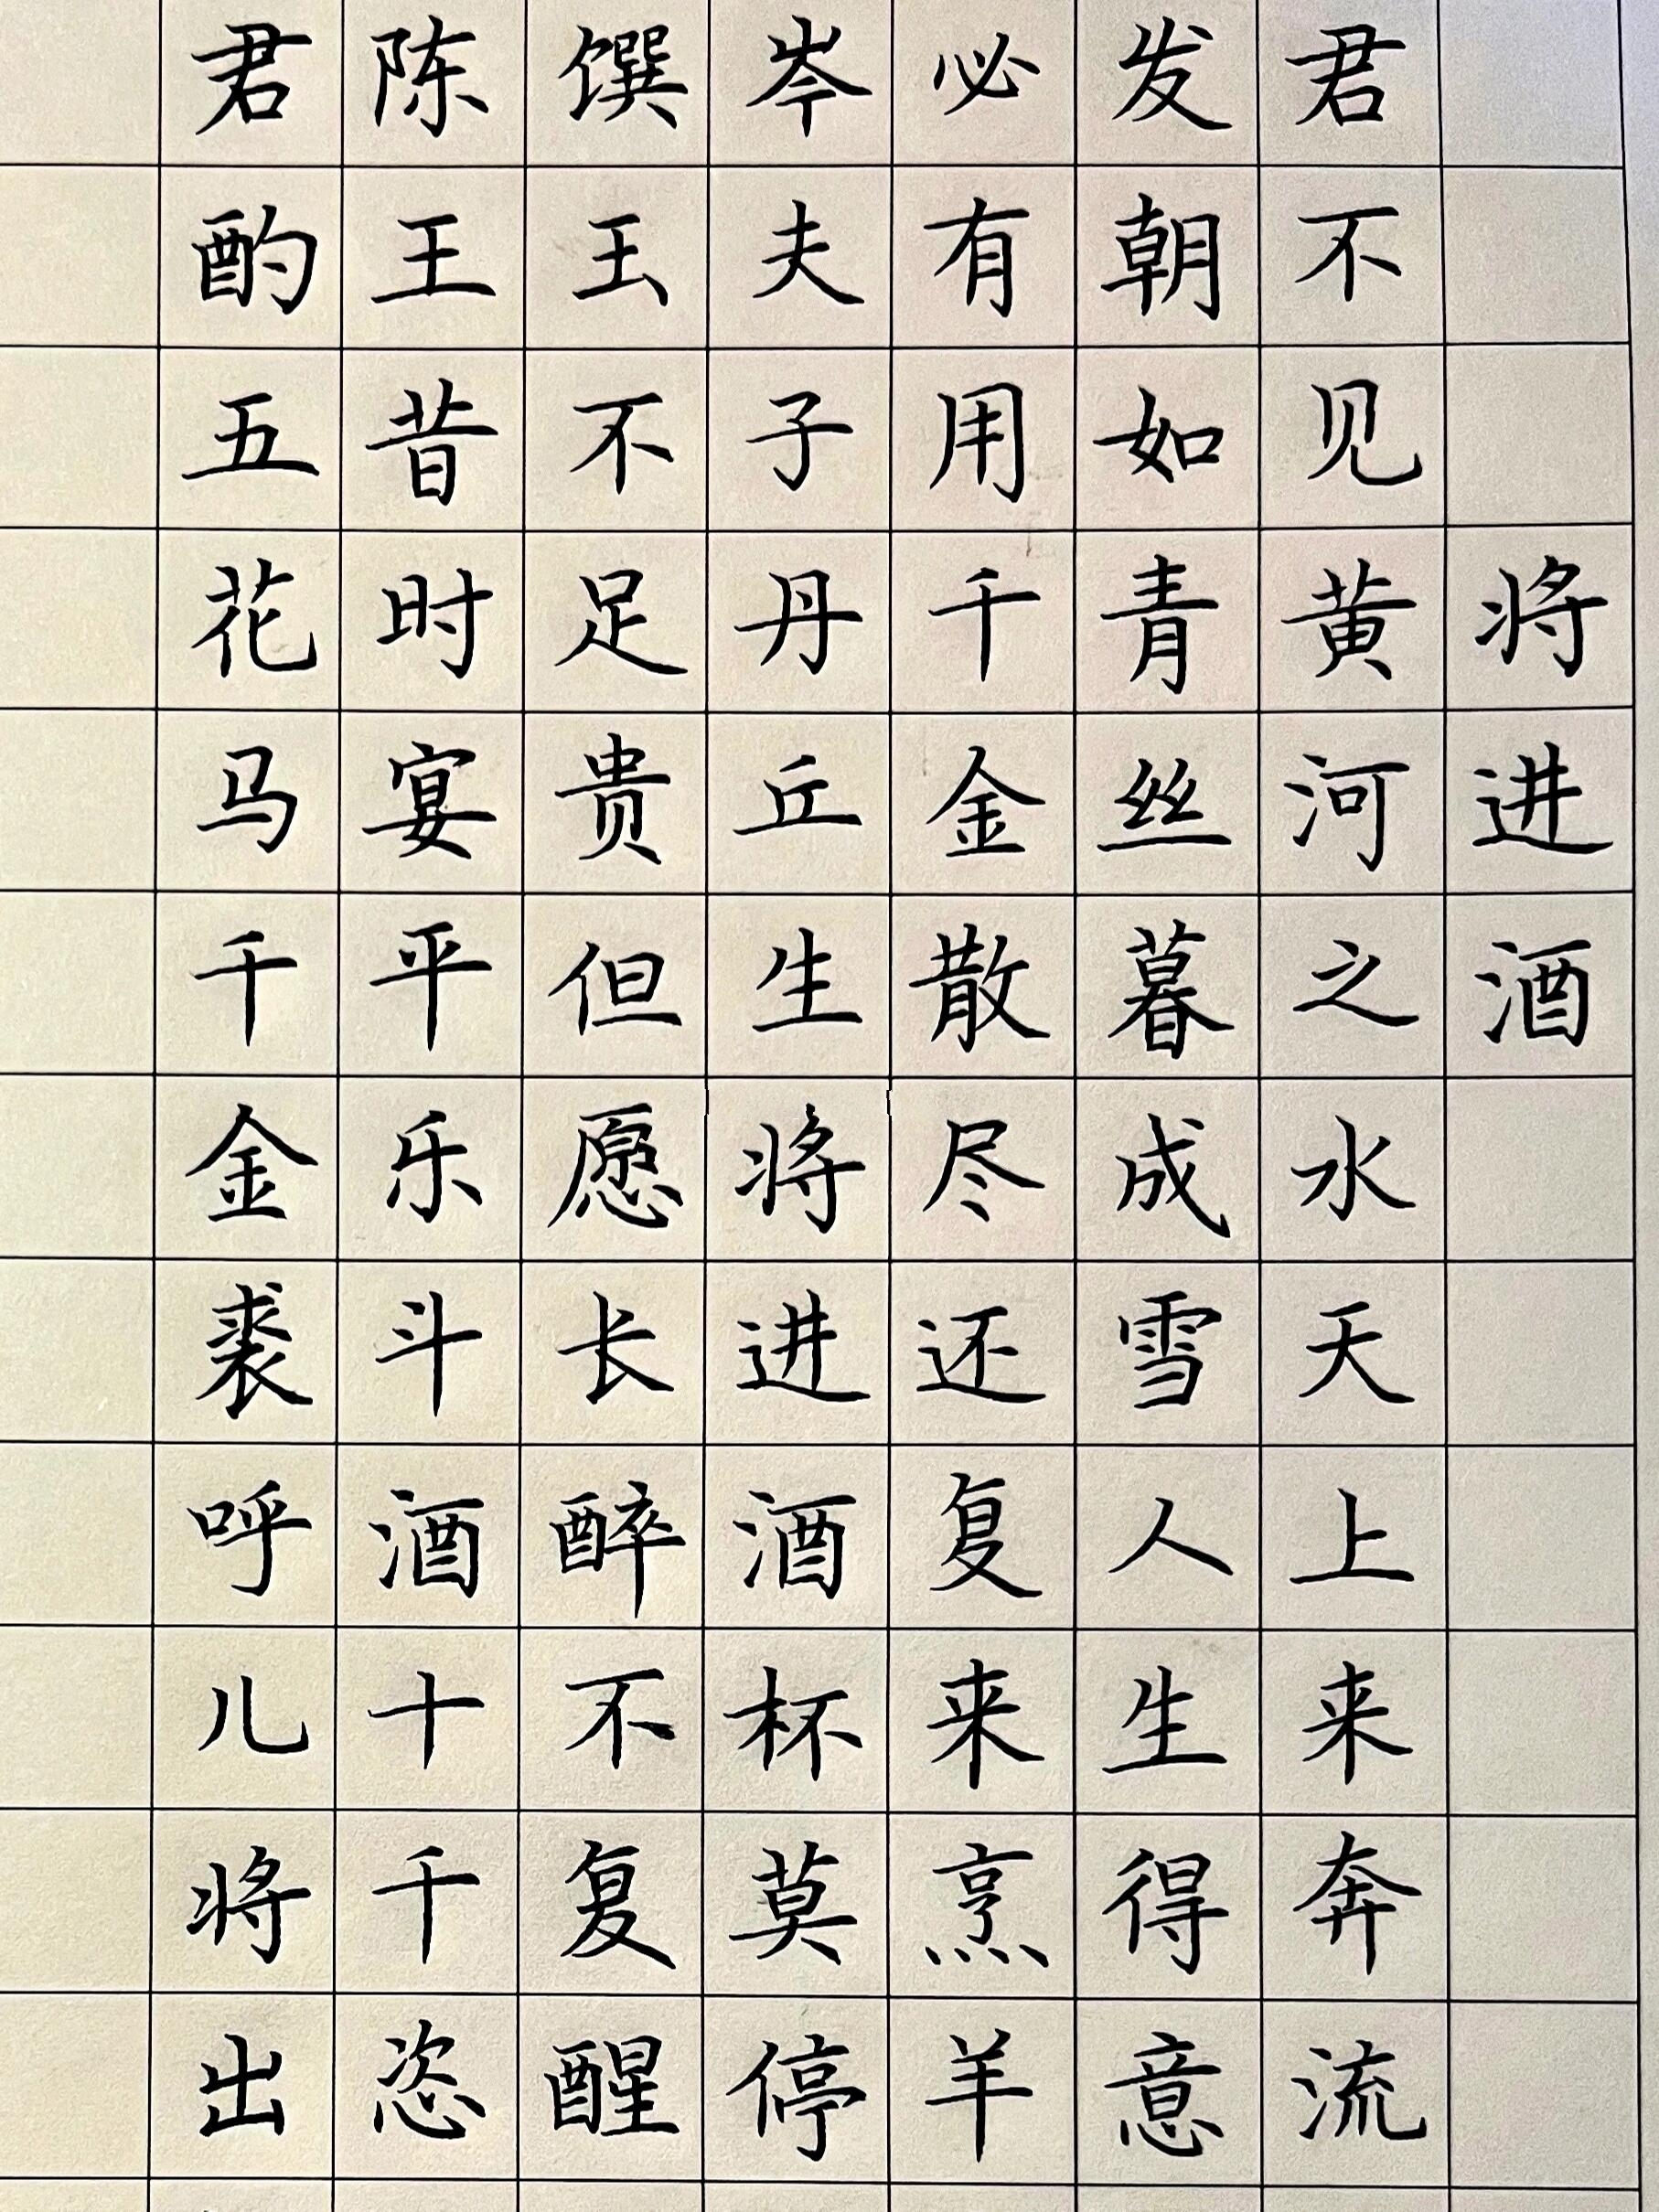 将进酒
君不见黄河之水天上来奔流
发朝如青丝暮成雪人生得意
必有用千金散尽还复来烹羊
岑夫子丹丘生将进酒杯莫停
馔玉不足贵但愿长醉不复醒
陈王昔时宴平乐斗酒十千恣
君酌五花马千金裘呼儿将出